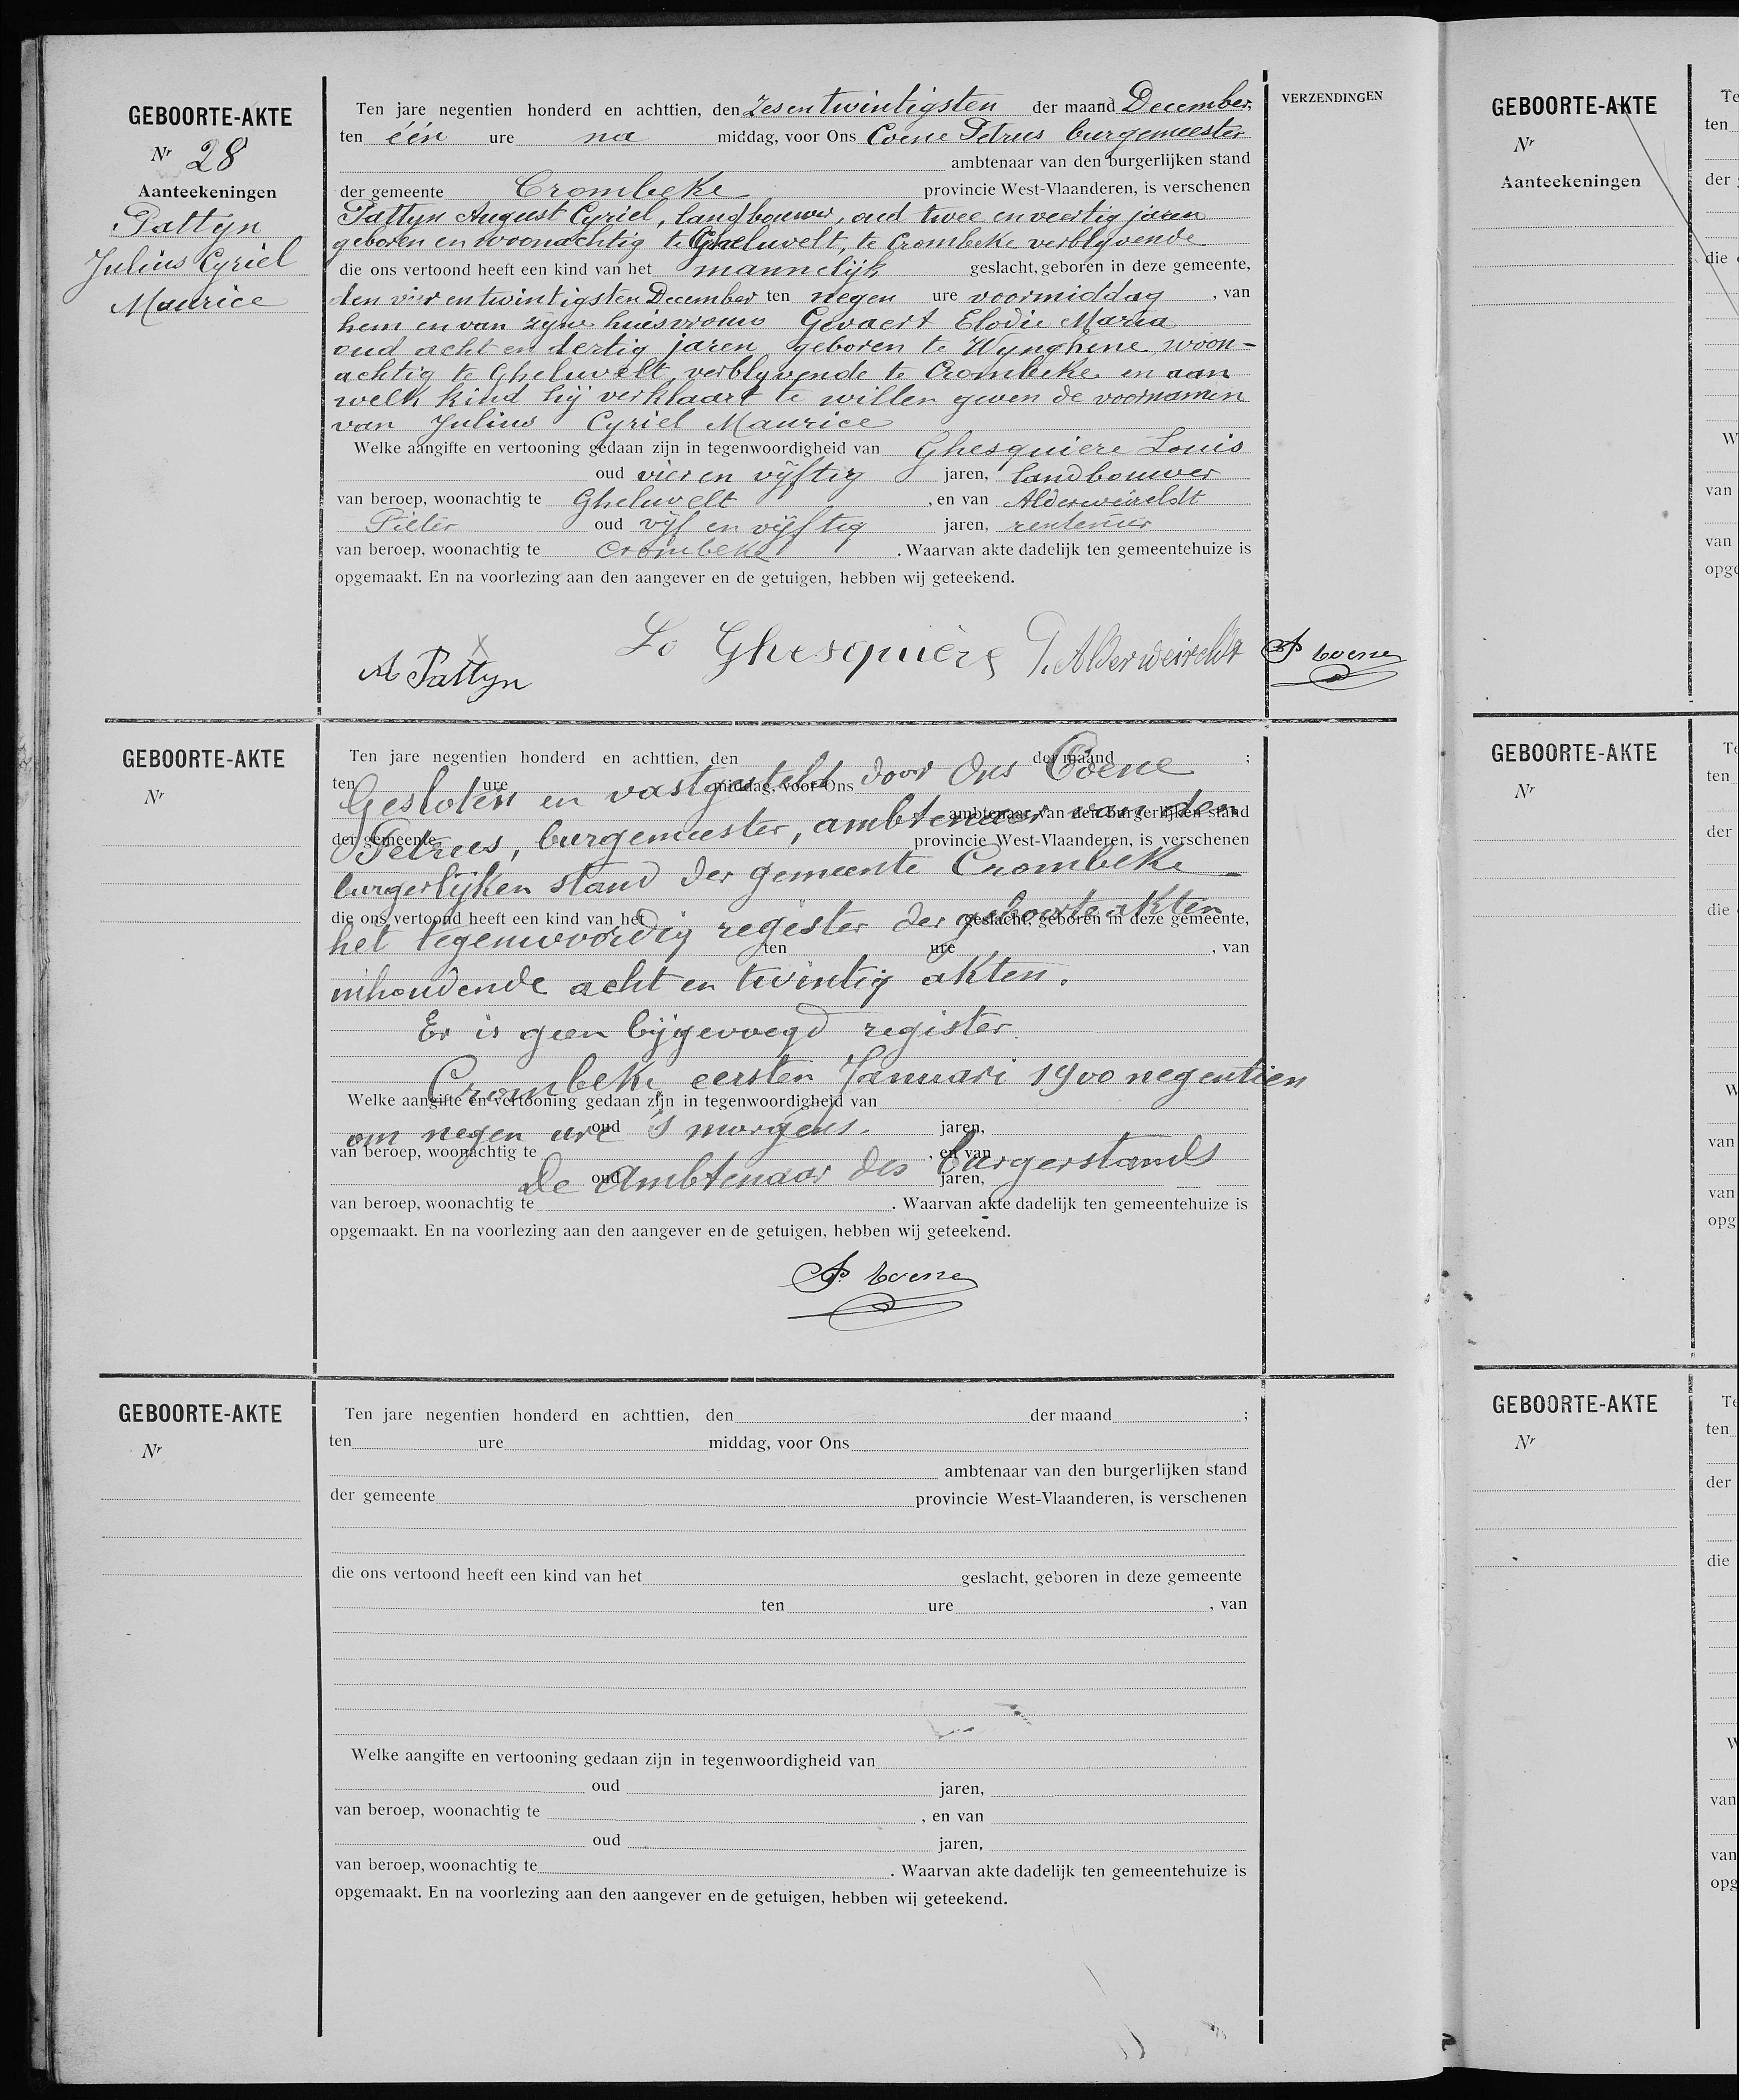 GEBOORTE-AKTE
Nr 28
Aanteekeningen
Pattyn
Julius Cyriel
Maurice
Ten jare negentien honderd en achttien, den Zes en twintigsten der maand December,
ten één ure na middag, voor Ons Coene Petrus burgemeester
ambtenaar van den burgerlijken stand
der gemeente Crombeke provincie West-Vlaanderen, is verschenen
Pattyn August Cyriel, landbouwer, oud twee en veertig jaren
geboren en woonachtig te Gheluvelt, te Crombeke verblyvende
die ons vertoond heeft een kind van het mannelijk geslacht, geboren in deze gemeente,
den vier en twintigsten December ten negen ure voormiddag, van
hem en van zyne huisvrouw Gevaert Elodie Maria
oud acht en dertig jaren geboren te Wynghene woon-
achtig te Gheluvelt, verblyvende te Crombeke en aan
welk kind hij verklaart te willen geven de voornamen
van Julius Cyriel Maurice
Welke aangifte en vertooning gedaan zijn in tegenwoordigheid van Ghesquiere Louis
oud vier en vijftig jaren, landbouwer
van beroep, woonachtig te Gheluvelt, en van Alderweireldt
Pieter oud vijf en vijftig jaren, rentenier
van beroep, woonachtig te Crombeke. Waarvan akte dadelijk ten gemeentehuize is
opgemaakt. En na voorlezing aan den aangever en de getuigen, hebben wij geteekend.
A Pattyn Lo Ghesquière P. Alderweireldt P Coene
VERZENDINGEN
GEBOORTE-AKTE
Nr
Ten jare negentien honderd en achttien, den der maand ;
ten ure middag, voor Ons
Gesloten en vastgesteld door Ons Coene
ambtenaar van den burgerlijken stand
Petrus, burgemeester, ambtenaar van den
der gemeente provincie West-Vlaanderen, is verschenen
burgerlijken stand der gemeente Crombeke
die ons vertoond heeft een kind van het geslacht, geboren in deze gemeente,
het tegenwoordig register der geboorteakten
ten ure , van
inhoudende acht en twintig akten.
Er is geen bijgevoegd register.
Crombeke eersten Januari 1900 negentien
Welke aangifte en vertooning gedaan zijn in tegenwoordigheid van
oud jaren,
om negen ure 's morgens.
van beroep, woonachtig te , en van
De Ambtenaar des Burgerstands
oud jaren,
van beroep, woonachtig te . Waarvan akte dadelijk ten gemeentehuize is
opgemaakt. En na voorlezing aan den aangever en de getuigen, hebben wij geteekend.
P. Coene
GEBOORTE-AKTE
Nr
Ten jare negentien honderd en achttien, den der maand ;
ten ure middag, voor Ons
ambtenaar van den burgerlijken stand
der gemeente provincie West-Vlaanderen, is verschenen
die ons vertoond heeft een kind van het geslacht, geboren in deze gemeente
ten ure , van
Welke aangifte en vertooning gedaan zijn in tegenwoordigheid van
oud jaren,
van beroep, woonachtig te , en van
oud jaren,
van beroep, woonachtig te . Waarvan akte dadelijk ten gemeentehuize is
opgemaakt. En na voorlezing aan den aangever en de getuigen, hebben wij geteekend.
GEBOORTE-AKTE
Nr
Aanteekeningen
Te
ten
der
die
W
van
van
opge
GEBOORTE-AKTE
Nr
Te
ten
der
die
W
van
van
opg
GEBOORTE-AKTE
Nr
Te
ten
der
die
W
van
van
opg